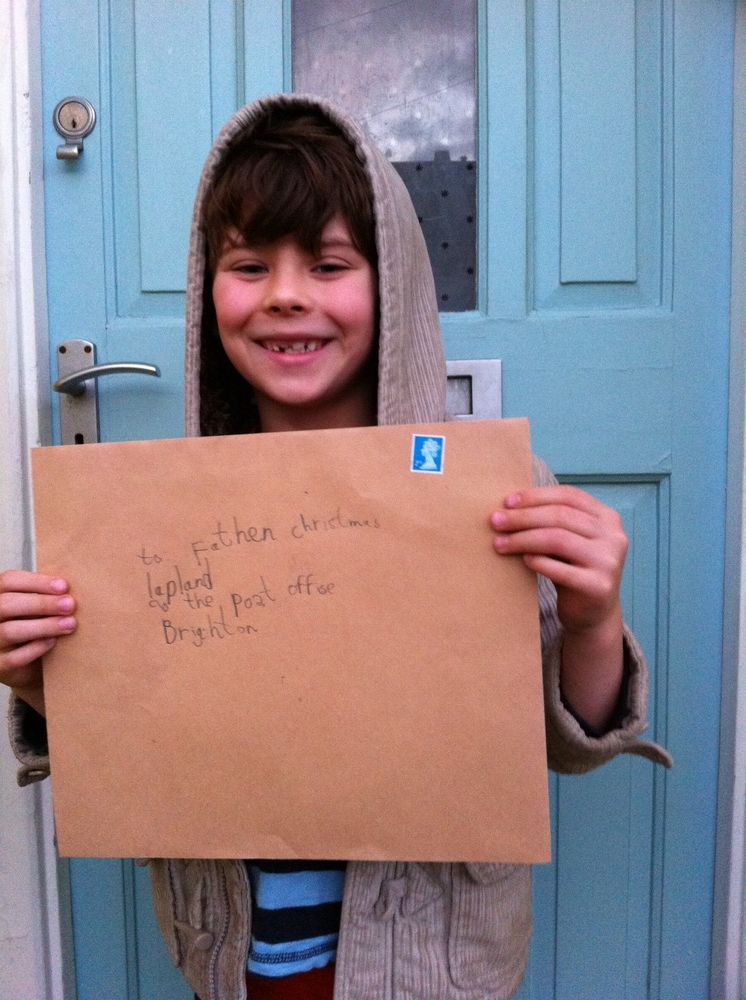 to Father christmas
lapland
the post offise
Brighton